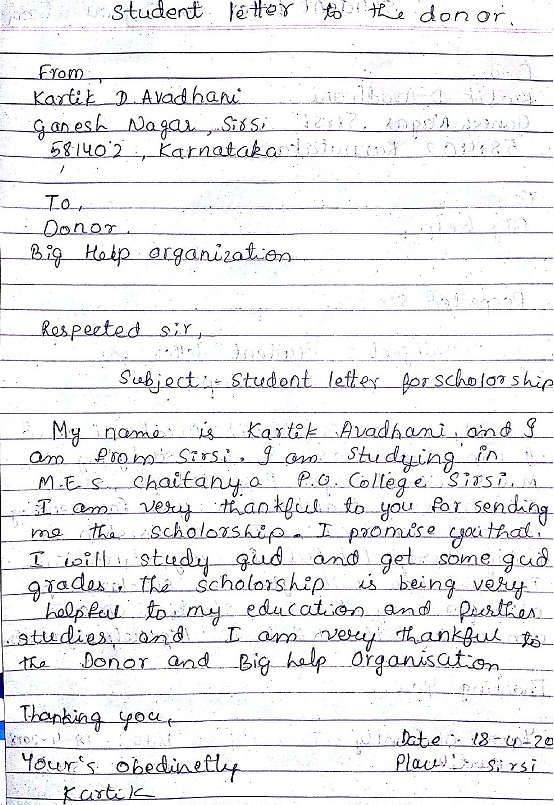 Student letter to the donor.
From,
Kartik D. Avadhani
Ganesh Nagar, Sirsi
581402, Karnataka
To,
Donor.
Big Help organization
Respected sir,
Subject:- Student letter for scholorship
My name is Kartik Avadhani and I
am from Sirsi. I am studying in
M.E.S Chaitanya P.U. College Sirsi.
I am very thankful to you for sending
me the scholorship. I promise
I will study gud and get some gud
grades. the scholorship is being very
helpful to my education and further
studies, and I am very thankful to
the Donor and Big help Organisation
Thanking you,
Date: 18-4-20
Your's obedinetly
Place: Sirsi
Kartik